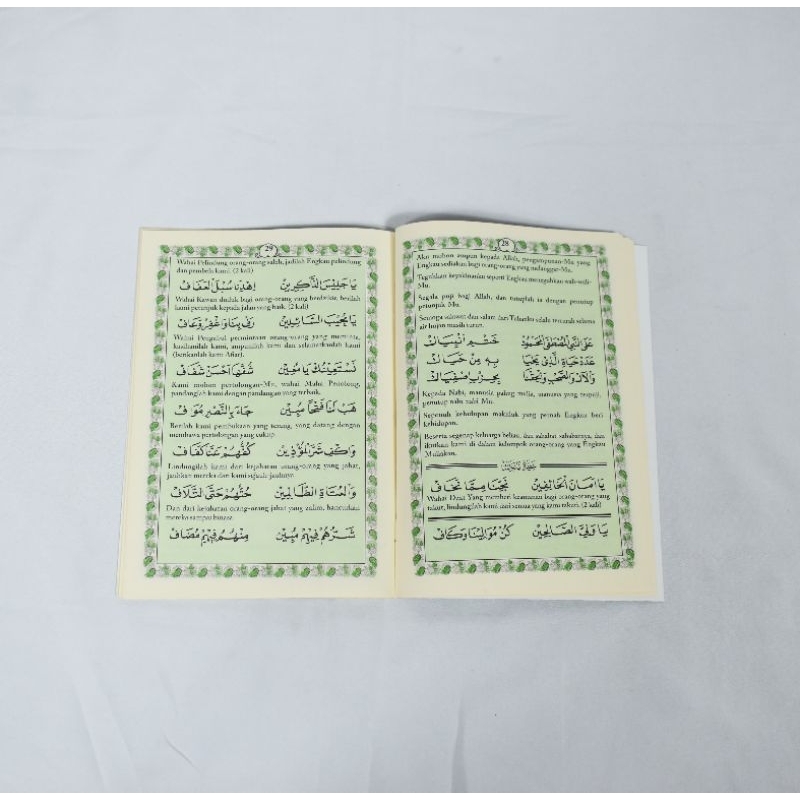 28
Aku mohon ampun kepada Allah, pengampunan-Mu yang
Engkau sediakan bagi orang-orang yang melanggar-Mu.
seperti Engkau
Mu.
Segala puji bagi Allah, dan
petunjuk Mu.
Semoga salawat dan salam dari Tuhanku selalu tercurah selama
air hujan masih turun.
عَلَى النَّبِيِّ الْمُصْطَفَى الْمَحْمُوْدْ خَتْمِ أَنْبِيَاكْ
عَدَدْ حَيَاةِ الَّذِيْ يَحْيَا بِهِ مِنْ حَيَاكْ
وَالْآلِ وَالصَّحْبِ
Kepada Nabi, manusia paling mulia, manusia yang terpuji,
penutup nabi-nabi Mu.
Sepenuh kehidupan makhluk yang pernah Engkau beri
kehidupan.
Beserta segenap keluarga beliau, dan sahabat-sahabatnya, dan
ikutkan kami di dalam kelompok orang-orang yang Engkau
Muliakan.
يَا أَمَانَ الْخَائِفِيْنَ نَجِّنَا مِمَّا نَخَافْ
Wahai Dzat Yang memberi keamanan bagi orang-orang yang
takut, lindungilah kami dari semua yang kami takuti. (2 kali)
يَا وَلِيَّ الصَّالِحِيْنَ كُنْ مُوَالِيْنَا وَكَافْ
29
Wahai Pelindung orang-orang salih, jadilah Engkau pelindung
dan pembela kami. (2 kali)
يَا جَلِيْسَ الذَّاكِرِيْنَ اِهْدِنَا سُبُلَ الْعَفَافْ
Wahai Kawan duduk bagi orang-orang yang berdzikir, berilah
kami petunjuk kepada jalan yang baik. (2 kali)
يَا مُجِيْبَ السَّائِلِيْنَ
Wahai Pengabul permintaan orang-orang yang meminta,
kasihanilah kami, ampunilah kami dan selamatkanlah kami
(berikanlah kami Afiat).
نَسْتَعِيْنُكَ يَا مُعِيْنْ شُفَّهَا أَحْسَنْ شَفَافْ
Kami mohon pertolongan-Mu, wahai Maha Penolong,
pandanglah kami dengan pandangan yang terbaik.
هَبْ لَنَا فَتْحًا مُبِيْنْ جَاءَ بِالنَّصْرِ مُوَافْ
Berilah kami pembukaan yang terang, yang datang dengan
membawa pertolongan yang cukup.
وَاكْفِ شَرَّ الْمُؤْذِيْنَ كُفَّهُمْ عَنَّا كَفَافْ
Lindungilah kami dari kejahatan orang-orang yang jahat,
jauhkan mereka dari kami sejauh-jauhnya.
وَالْعُتَاةِ الظَّالِمِيْنَ حُتَّهُمْ حَتَّى التَّلَافْ
Dan dari kejahatan orang-orang jahat yang zalim, hancurkan
mereka sampai binasa.
شَرُّهُمْ فِيْهِمْ مُبِيْنْ مِنْهُمْ فِيْهِمْ مُضَافْ